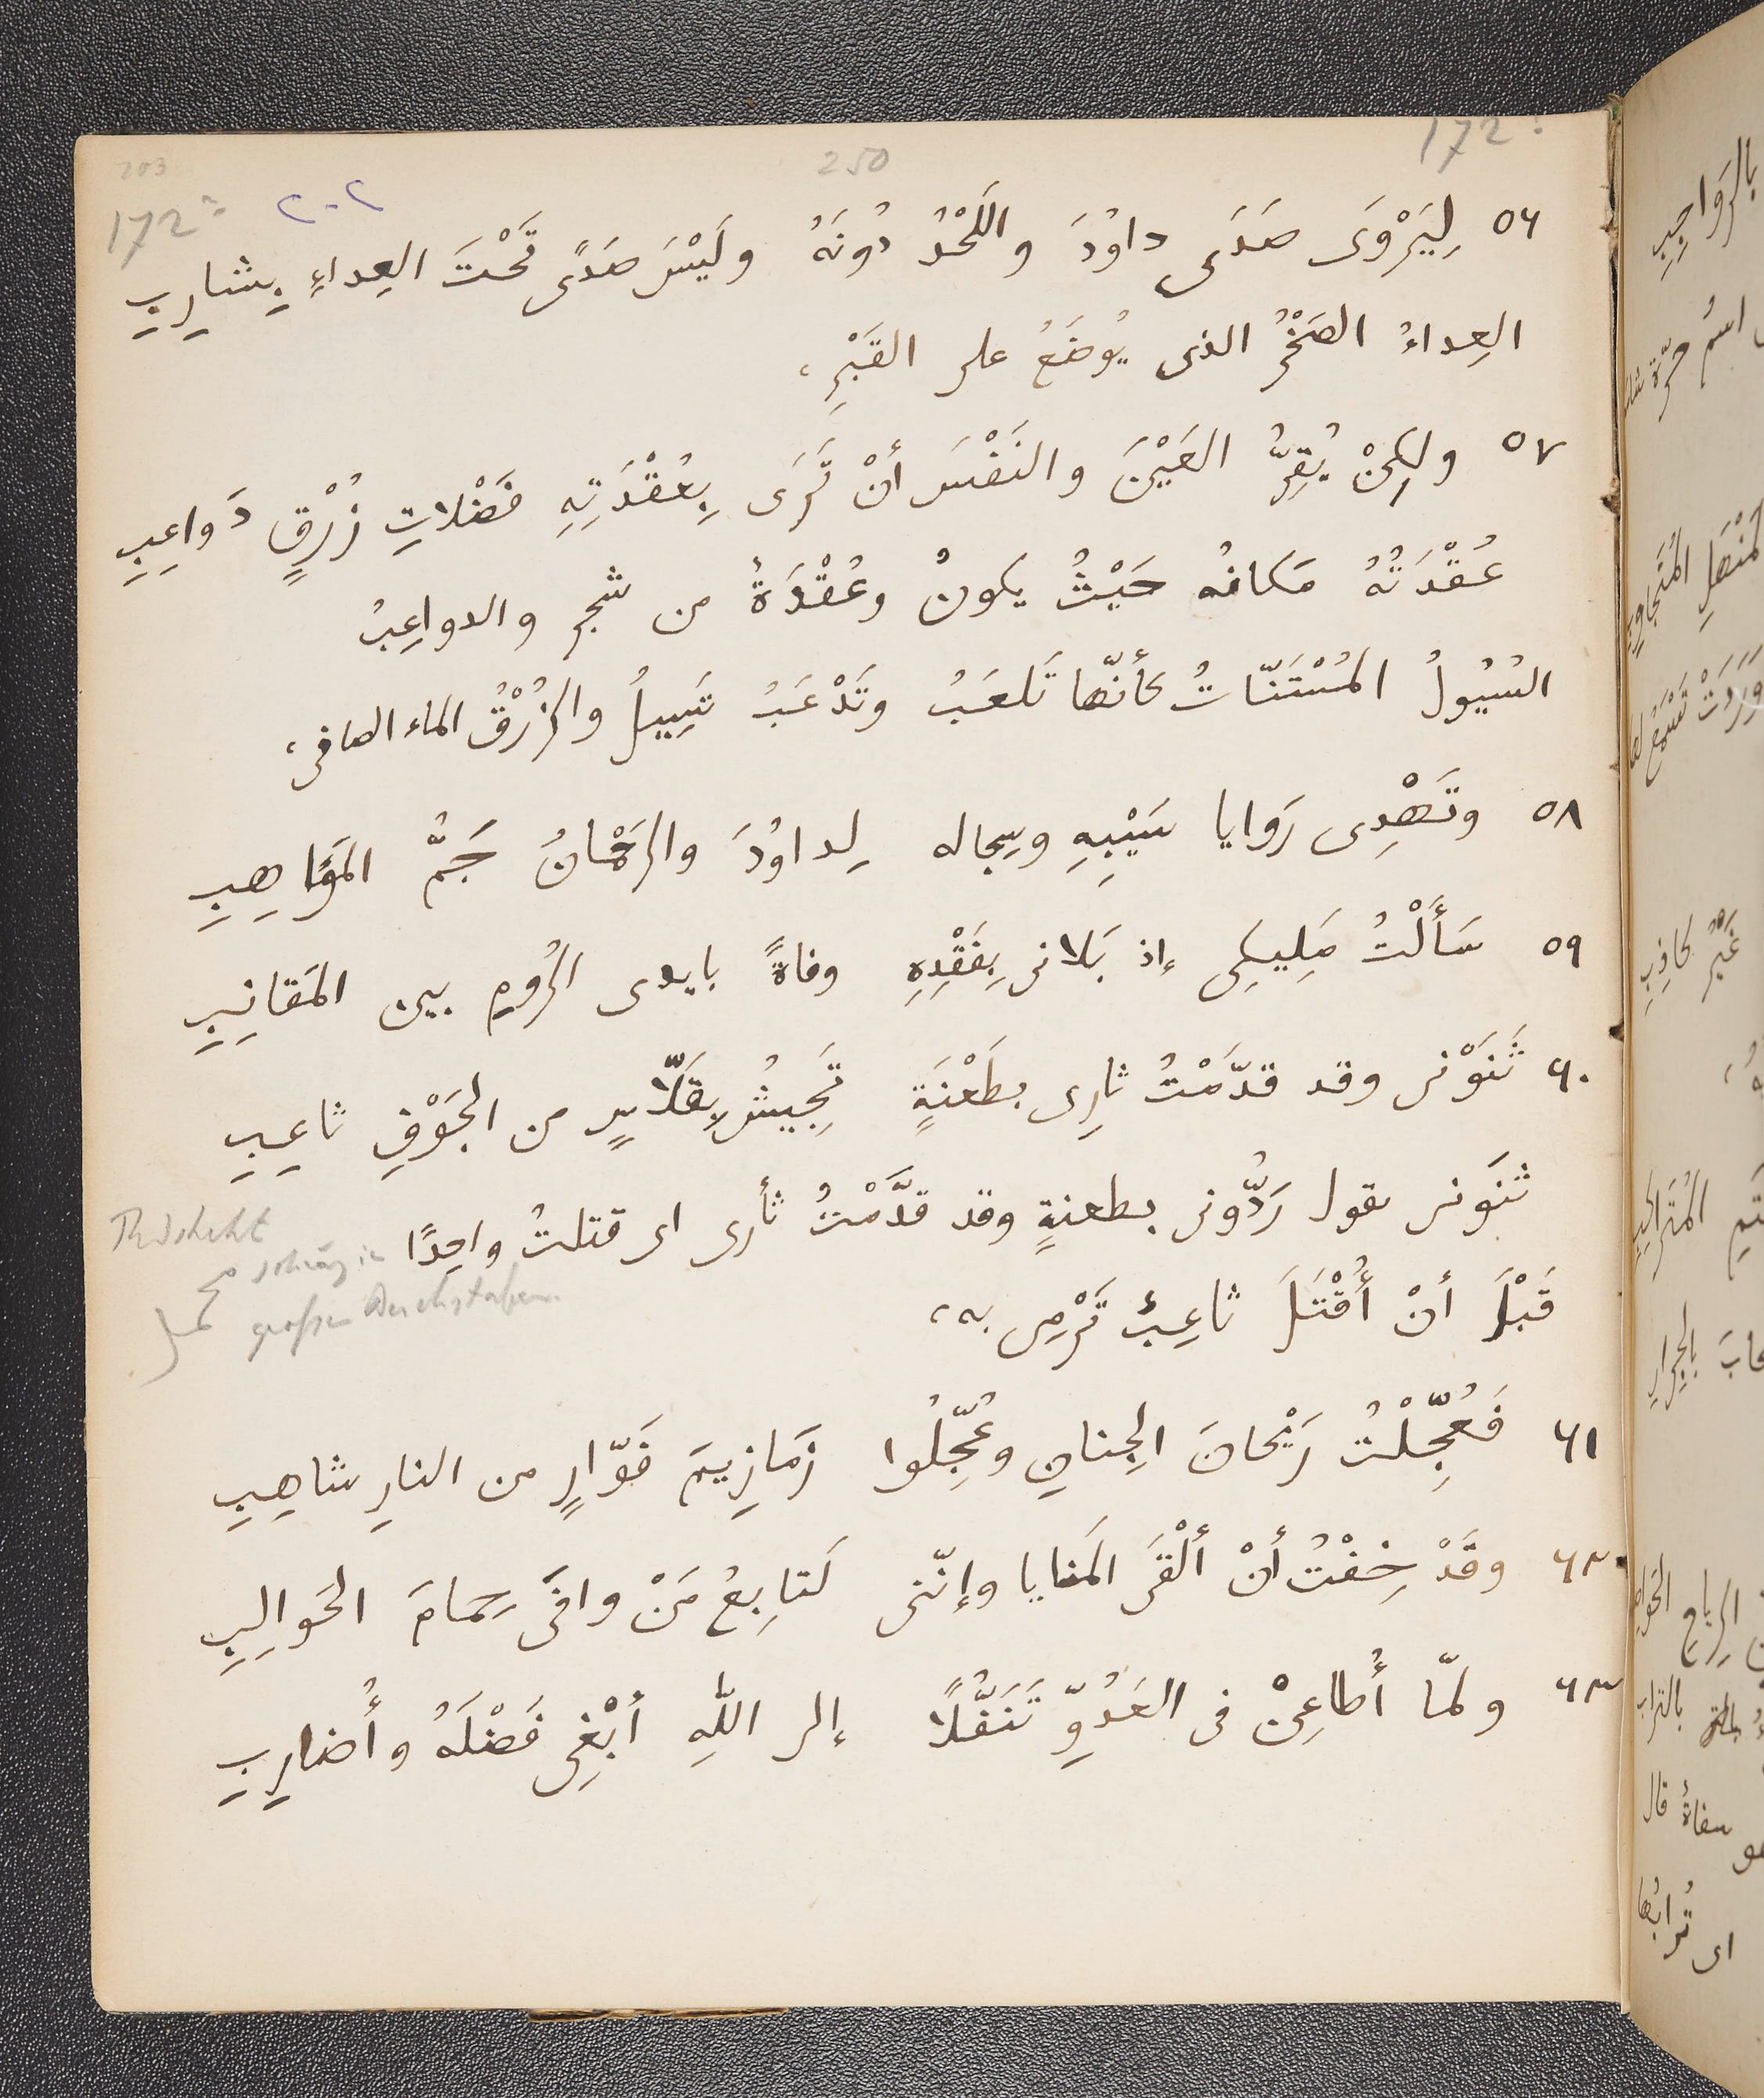 203 250 172
172 ٢٠٢
٥٦ لِيَرْوَى صَدَى داوُدَ واللَحْدُ دُونَهُ ولَيْسَ صَدًى تَحْتَ العِداءِ بِشارِبِ
العِداءُ الصَخْرُ الذى يُوضَعُ على القَبْرِ،
٥٧ ولكِنْ يُقِرُّ العَيْنَ والنَفْسَ أنْ تَرَى بِعُقْدَتِهِ فَضْلاتِ زُرْقٍ دَواعِبِ
عُقْدَتُهُ مَكانُه حَيْثُ يكونُ وعُقْدَةٌ من شجر والدواعِبُ
السُيُولُ المُسْتَنّاتُ كأنّها تَلعَبُ وتَدْعَبُ تَسِيلُ والزُرْقُ الماء الصافى،
٥٨ وتَهْدِى رَوايا سَيْبِهِ وسِجاله لِداوُدَ والرَحْمٰنُ جَمُّ المَوَاهِبِ
٥٩ سَأَلْتُ مَلِيكِى إذ بَلانى بِفَقْدِهِ وفاةً بايدى الرُومِ بين المَقانِبِ
٦٠ ثَنَوْنى وقد قدّمْتُ ثارِى بطَعْنَةٍ تَجِيشُ بِقَلّاسٍ من الجَوْفِ ثاعِبِ
ثنَونى يقول رَدُّونى بطعنةٍ وقد قدَّمْتُ ثأرى اى قتلتُ واحِدًا
قَبْلَ أنْ أُقْتَلَ ثاعِبٌ تَرْمِى به،
großen Buchstaben
٦١ فَعُجِّلْتُ رَيْحانَ الجِنانِ وعُجِّلُوا زَمازِيمَ فَوّارٍ من النارِ شاهِبِ
٦٢ وقَدْ خِفْتُ أنْ ألْقَى المَنايا وإنّنى لَتابِعُ مَنْ وافَى حِمامَ الحَوالِبِ
٦٣ ولمّا أُطاعِنْ فى العَدُوِّ تَنَفُّلًا إلى اللّهِ أبْغِى فَضْلَهُ وأُضارِبِ